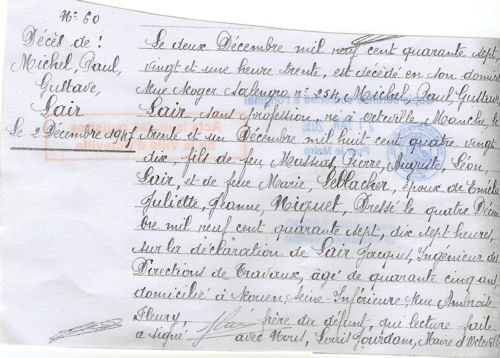 N° 60
Décès de :
Michel, Paul,
Gustave,
Lair
Le 2 Décembre 1947
Le deux Décembre mil neuf cent quarante sept,
vingt et une heure trente, est décédé en son domi
Rue Roger Salengro n° 254, Michel, Paul Gustave
Lair, sans profession, né à Octeville, Manche, le
trente et un Décembre mil huit cent quatre vingt
dix, fils de feu Pierre, Auguste, Léon,
Lair, et de feue Marie, époux de Emilie
Juliette, Jeanne, Niquet, Dressé le quatre Décem
bre mil neuf cent quarante sept, dix sept heures,
sur la déclaration de Lair Jacques, Ingénieur des
Directions de Travaux, âgé de quarante cinq ans,
domicilié à Rouen Seine-Inférieure Rue Ambroise
Fleury, frère du défunt, qui lecture faite
a signé avec Nous, Gourdan, Maire d'Octevil